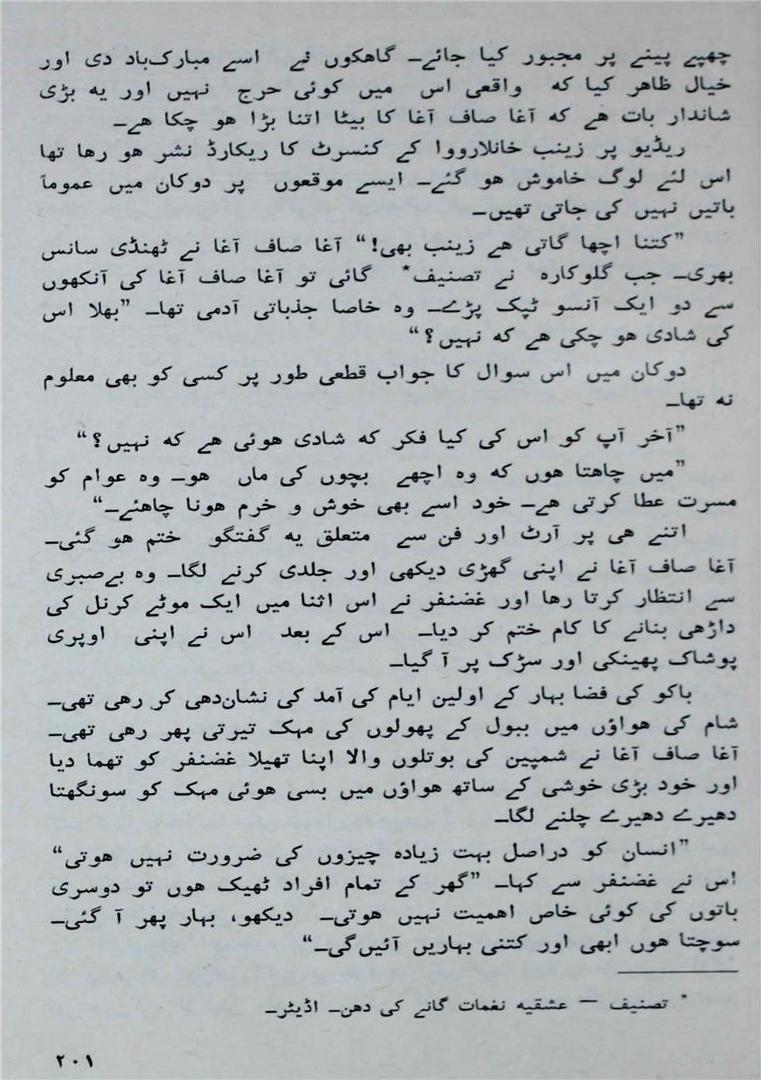 چھپے پینے پر مجبور کیا جائے۔ گاھکوں نے اسے مبارک‌باد دی اور
خیال ظاھر کیا کہ واقعی اس میں کوئی حرج نہیں اور یہ بڑی
شاندار بات ھے کہ آغا صاف آغا کا بیٹا اتنا بڑا ھو چکا ھے۔
ریڈیو پر زینب خانلارووا کے کنسرٹ کا ریکارڈ نشر ھو رھا تھا
اس لئے لوگ خاموش ھو گئے۔ ایسے موقعوں پر دوکان میں عموماً
باتیں نہیں کی جاتی تھیں۔
”کتنا اچھا گاتی ھے زینب بھی!“ آغا صاف آغا نے ٹھنڈی سانس
بھری۔ جب گلوکارہ نے تصنیف* گائی تو آغا صاف آغا کی آنکھوں
سے دو ایک آنسو ٹپک پڑے۔ وہ خاصا جذباتی آدمی تھا۔ ”بھلا اس
کی شادی ھو چکی ھے کہ نہیں؟“
دوکان میں اس سوال کا جواب قطعی طور پر کسی کو بھی معلوم
نہ تھا۔
”آخر آپ کو اس کی کیا فکر کہ شادی ھوئی ھے کہ نہیں؟“
”میں چاھتا ھوں کہ وہ اچھے بچوں کی ماں ھو۔ وہ عوام کو
مسرت عطا کرتی ھے۔ خود اسے بھی خوش و خرم ھونا چاھئے۔“
اتنے ھی پر آرٹ اور فن سے متعلق یہ گفتگو ختم ھو گئی۔
آغا صاف آغا نے اپنی گھڑی دیکھی اور جلدی کرنے لگا۔ وہ بےصبری
سے انتظار کرتا رھا اور غضنفر نے اس اثنا میں ایک موٹے کرنل کی
داڑھی بنانے کا کام ختم کر دیا۔ اس کے بعد اس نے اپنی اوپری
پوشاک پھینکی اور سڑک پر آ گیا۔
باکو کی فضا بہار کے اولین ایام کی آمد کی نشان‌دھی کر رھی تھی۔
شام کی ھواؤں میں ببول کے پھولوں کی مہک تیرتی پھر رھی تھی۔
آغا صاف آغا نے شمپین کی بوتلوں والا اپنا تھیلا غضنفر کو تھما دیا
اور خود بڑی خوشی کے ساتھ ھواؤں میں بسی ھوئی مہک کو سونگھتا
دھیرے دھیرے چلنے لگا۔
”انسان کو دراصل بہت زیادہ چیزوں کی ضرورت نہیں ھوتی“
اس نے غضنفر سے کہا۔ ”گھر کے تمام افراد ٹھیک ھوں تو دوسری
باتوں کی کوئی خاص اھمیت نہیں ھوتی۔ دیکھو، بہار پھر آ گئی۔
سوچتا ھوں ابھی اور کتنی بہاریں آئیں‌گی۔“
* تصنیف — عشقیہ نغمات گانے کی دھن۔ اڈیٹر۔
۲۰۱